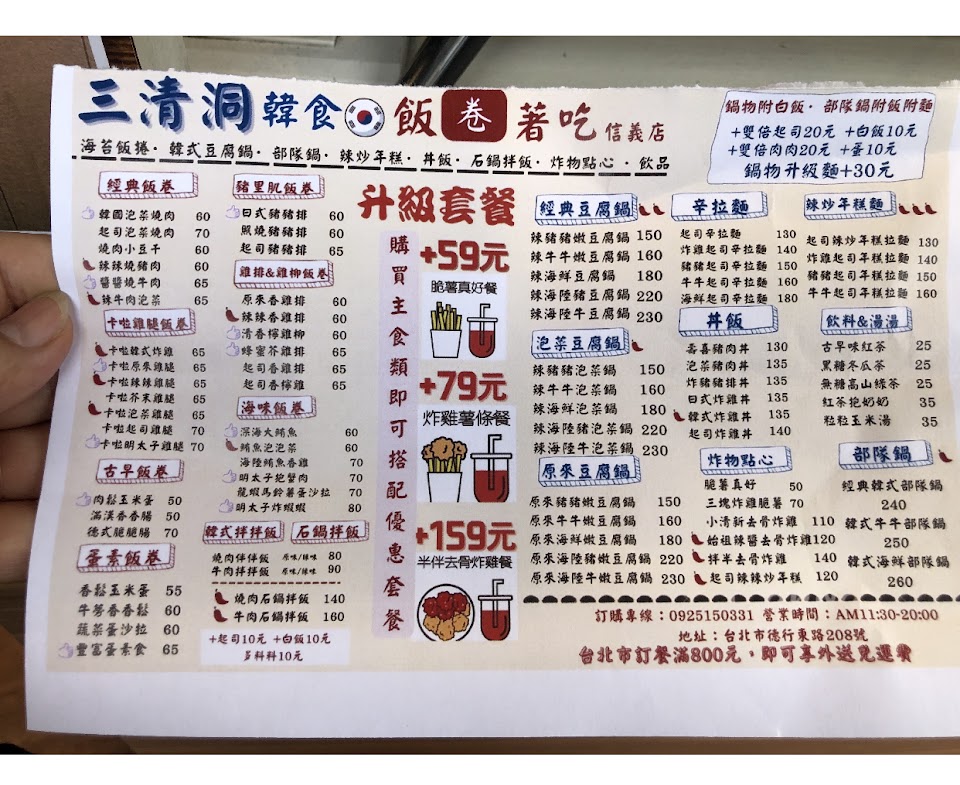 三清洞韓食 飯卷著吃 信義店
海苔飯捲·韓式豆腐鍋·部隊鍋·辣炒年糕·丼飯·石鍋拌飯·炸物點心·飲品
鍋物附白飯·部隊鍋附飯附麵
+雙倍起司20元 +白飯10元
+雙倍肉肉20元 +蛋10元
鍋物升級麵+30元
經典飯卷
韓國泡菜燒肉 60
起司泡菜燒肉 70
燒肉小豆干 60
辣辣燒豬肉 60
醬醬燒牛肉 65
辣牛肉泡菜 65
卡啦雞腿飯卷
卡啦韓式炸雞 65
卡啦原來雞腿 65
卡啦辣辣雞腿 65
卡啦芥末雞腿 65
卡啦泡菜雞腿 65
卡啦起司雞腿 70
卡啦明太子雞腿 70
古早飯卷
肉鬆玉米蛋 50
滿漢香香腸 50
德式脆腿腸 50
蛋素飯卷
香鬆玉米蛋 55
牛蒡香香鬆 60
蔬菜蛋沙拉 60
豐富蛋素食 65
豬里肌飯卷
日式豬豬排 60
照燒豬豬排 60
起司豬豬排 65
雞排&雞柳飯卷
原來香雞排 60
辣辣香雞排 60
清香檸雞柳 60
蜂蜜芥雞排 60
起司香雞排 65
起司香檸雞 65
海味飯卷
深海大鮪魚 60
鮪魚泡泡菜 60
海陸鮪魚香雞 70
明太子把蟹肉 70
龍蝦馬鈴薯蛋沙拉 70
明太子炸蝦蝦 80
韓式拌拌飯 石鍋拌飯
燒肉伴伴飯 原味/辣味 80
牛肉拌拌飯 原味/辣味 90
燒肉石鍋拌飯 140
牛肉石鍋拌飯 140
+起司10元 +白飯10元
多料料10元
升級套餐
購買主食類即可搭配優惠套餐
+59元
脆薯真好餐
+79元
炸雞薯條餐
+159元
半伴去骨炸雞餐
經典豆腐鍋
辣豬豬嫩豆腐鍋 150
辣牛牛嫩豆腐鍋 160
辣海鮮豆腐鍋 180
辣海陸豬豆腐鍋 220
辣海陸牛豆腐鍋 230
泡菜豆腐鍋
辣豬豬泡菜鍋 150
辣牛牛泡菜鍋 160
辣海鮮泡菜鍋 180
辣海陸豬泡菜鍋 220
辣海陸牛泡菜鍋 230
原來豆腐鍋
原來豬豬嫩豆腐鍋 150
原來牛牛嫩豆腐鍋 160
原來海鮮嫩豆腐鍋 180
原來海陸豬嫩豆腐鍋 220
原來海陸牛嫩豆腐鍋 230
辛拉麵
起司辛拉麵 130
炸雞起司辛拉麵 140
豬豬起司辛拉麵 150
牛牛起司辛拉麵 160
海鮮起司辛拉麵 180
丼飯
壽喜豬肉丼 130
泡菜豬肉丼 135
炸豬豬排丼 135
日式炸雞丼 135
韓式炸雞丼 135
起司炸雞丼 140
炸物點心
脆薯真好 50
三塊炸雞脆薯 70
小清新去骨炸雞 110
始祖辣醬去骨炸雞 120
拌半去骨炸雞 140
起司辣辣炒年糕 120
辣炒年糕麵
起司辣炒年糕拉麵 130
炸雞起司年糕拉麵 140
豬豬起司年糕拉麵 150
牛牛起司年糕拉麵 160
飲料&湯湯
古早味紅茶 25
黑糖冬瓜茶 25
無糖高山綠茶 25
紅茶抱奶奶 35
粒粒玉米湯 35
部隊鍋
經典韓式部隊鍋
240
韓式牛牛部隊鍋
250
韓式海鮮部隊鍋
260
訂購專線：0925150331 營業時間：AM11:30-20:00
地址：台北市德行東路208號
台北市訂餐滿800元，即可享外送免運費